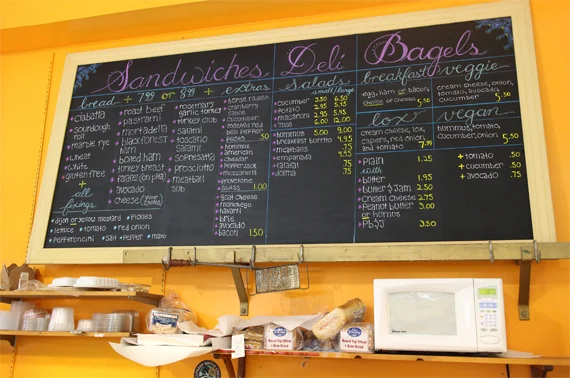 Sandwiches
bread + 7.99 or 8.99 + extras
ciabatta
soundough
roll
marble rye
wheat
white
gluten free
+
all
fixings
roast beef
pastrami
mortadella
black forest
ham
boiled ham
turkey breast
falafel (on pita)
avocado
cheese
rosemary
garlic turkey
turkey club
salami
toscano
salami
sopresatta
prosciutto
meatball
sub
horse radish
cranberry
sauce
cucumber
roasted red
bell pepper
pesto .50
hummus
american
cheddar
pepperjack
mozzarella
provolone
swiss 1.00
goat cheese
manchego
havarti
brie
avocado
bacon 1.50
dijon or yellow mustard + pickles
lettuce + tomato + red onion
pepperoncini + salt + pepper + mayo
Deli
salads
small / large
cucumber 3.50 6.50
potato 2.95 5.45
macaroni 2.95 5.45
tuna 6.00 12.00
hummus 5.00 9.00
breakfast burrito 4.95
meatballs .75
empanada 4.95
falafel .75
dolma .75
Bagels
breakfast
egg, ham or bacon
choice of cheese 5.50
veggie
cream cheese, onion,
tomato, avocado,
cucumber 5.50
lox
cream cheese, lox,
capers, red onion,
and tomato 7.99
vegan
hummus, tomato,
cucumber, onion 5.50
plain 1.25
with
butter 1.95
butter & jam 2.50
cream cheese 2.75
peanut butter 3.00
or humus
PB&J 3.50
+ tomato .50
+ cucumber .50
+ avocado .75